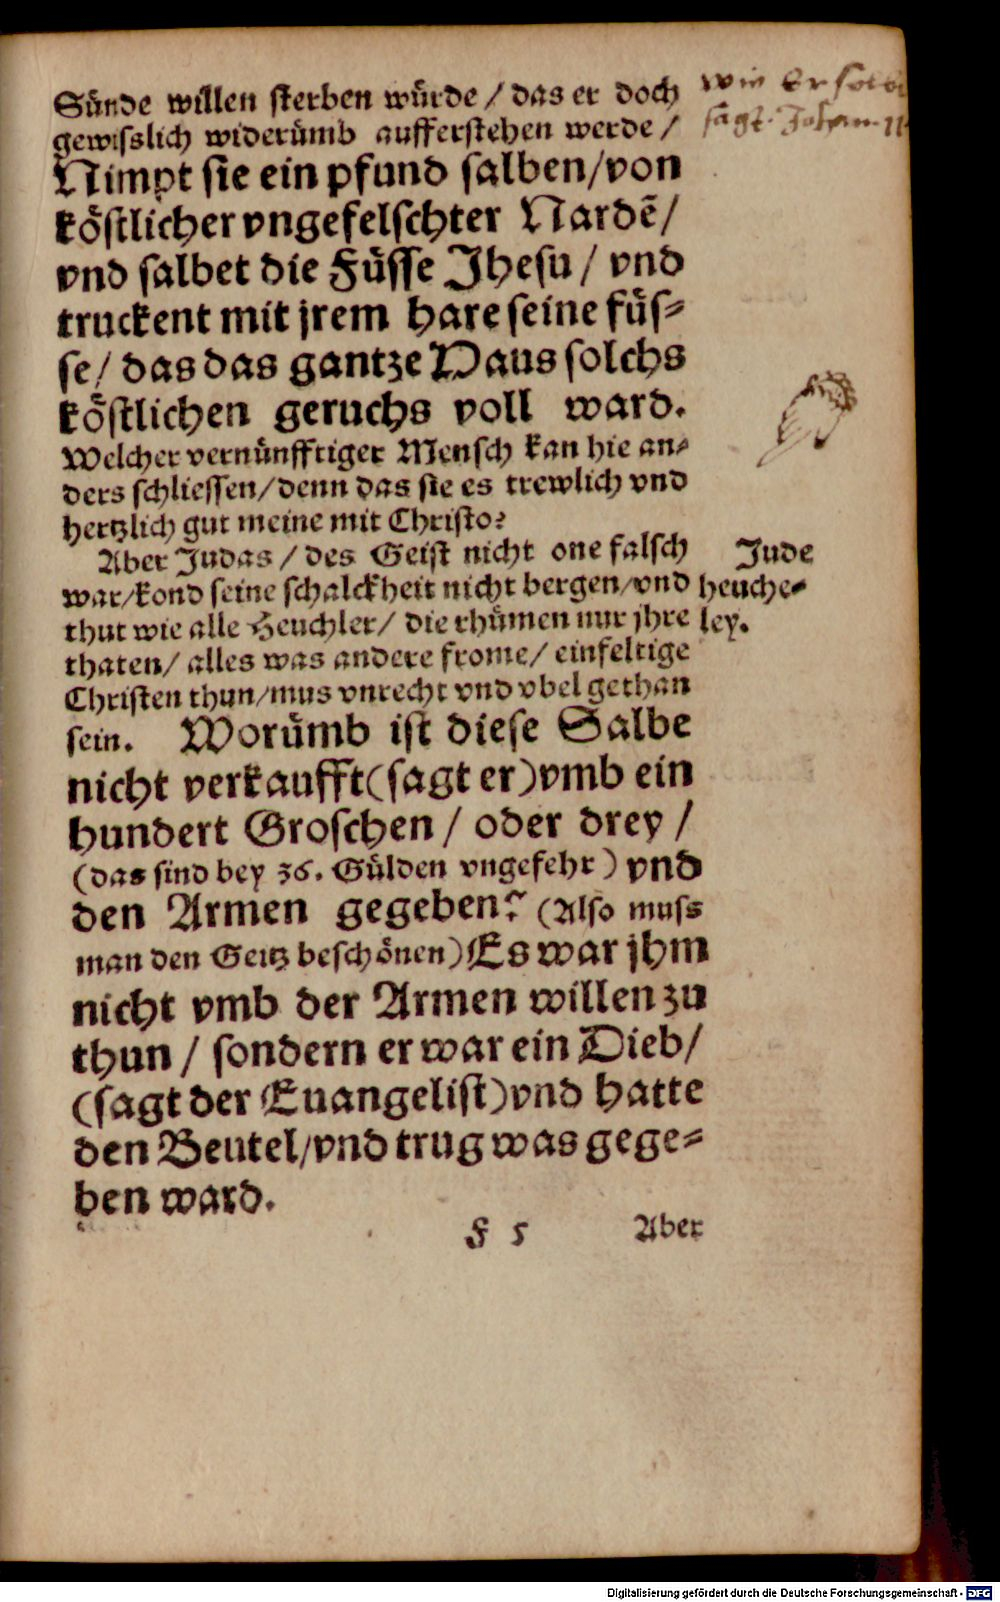 Sünde willen sterben würde / das er doch
gewisslich widerümb aufferstehen werde /
Nimpt sie ein pfund salben/von
köstlicher vngefelschter Nardẽ/
vnd salbet die Füsse Jhesu / vnd
truckent mit jrem hare seine füs-
se/ das das gantze Haus solchs
köstlichen geruchs voll ward.
Welcher vernünfftiger Mensch kan hie an-
ders schliessen/denn das sie es trewlich vnd
hertzlich gut meine mit Christo?
Aber Judas / des Geist nicht one falsch
war/kond seine schalckheit nicht bergen/vnd
thut wie alle Heuchler/ die rhümen nur jhre
thaten/ alles was andere frome/ einfeltige
Christen thun/mus vnrecht vnd vbel gethan
sein. Worümb ist diese Salbe
nicht verkaufft(sagt er)vmb ein
hundert Groschen / oder drey /
(das sind bey 36. Gülden vngefehr) vnd
den Armen gegeben? (Also muss
man den Geitz beschönen)Es war jhm
nicht vmb der Armen willen zu
thun / sondern er war ein Dieb/
(sagt der Euangelist)vnd hatte
den Beutel/vnd trug was gege-
ben ward.
F 5 Aber
wie Er
sagt. Johan. 11
Jude
heuche-
ley.
Digitalisierung gefördert durch die Deutsche Forschungsgemeinschaft - DFG